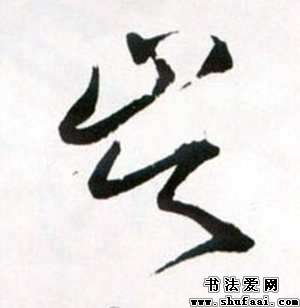 岂
书法爱网
www.shufaai.com